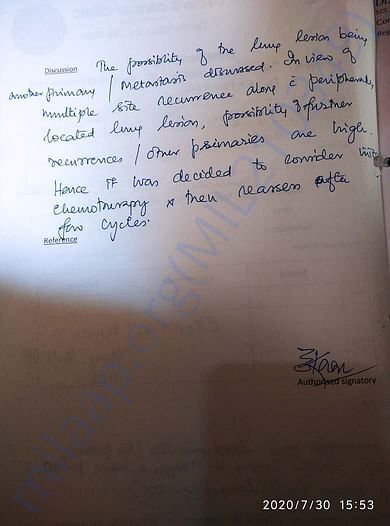 Discussion The possiblity of the lung lesion being
another primary / Metastasis discussed. In view of
multiple site recurrence along c̄ peripheraly
located lung lesion, possiblity of further
recurrences / other primaries are high.
Hence it was decided to consider
chemotherapy & then reasses after
few cycles.
Reference
Authorised signatory
milaap.org
2020/7/30 15:53